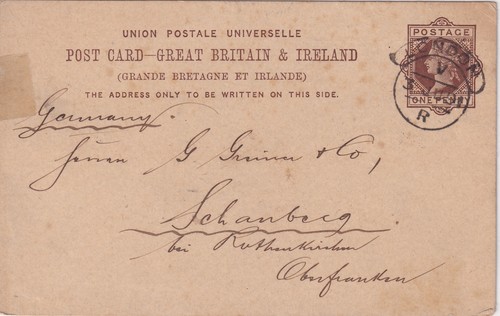 UNION POSTALE UNIVERSELLE
POST CARD—GREAT BRITAIN & IRELAND
(GRANDE BRETAGNE ET IRLANDE)
THE ADDRESS ONLY TO BE WRITTEN ON THIS SIDE.
POSTAGE
ONE PENNY
LONDON
V
R
Germany
Herren G Grimm & Co,
Schauberg
bei Rothenkirchen
Oberfranken